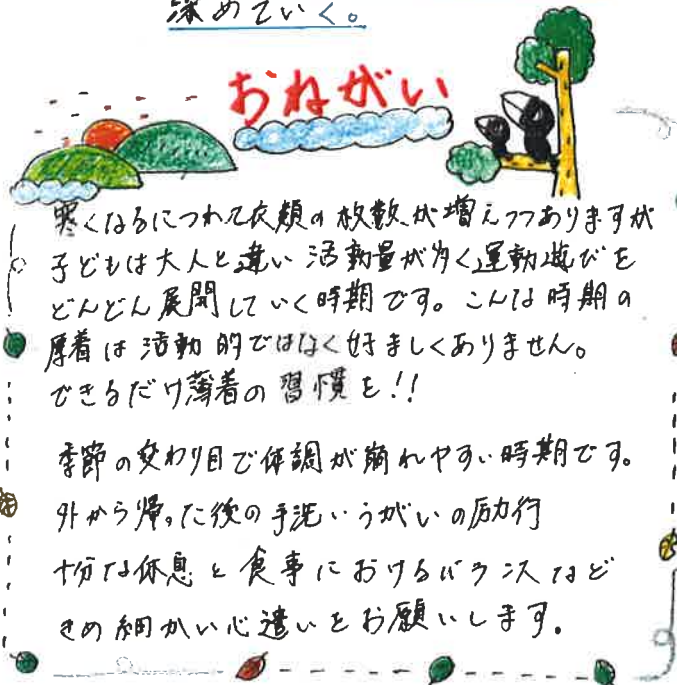 深めていく。
おねがい
寒くなるにつれて衣類の枚数が増えつつありますが
子どもは大人と違い活動量が多く運動遊びを
どんどん展開していく時期です。こんな時期の
厚着は活動的ではなく好ましくありません。
できるだけ薄着の習慣を!!
季節の変わり目で体調が崩れやすい時期です。
外から帰った後の手洗いうがいの励行
十分な休息と食事におけるバランスなど
きめ細かい心遣いをお願いします。